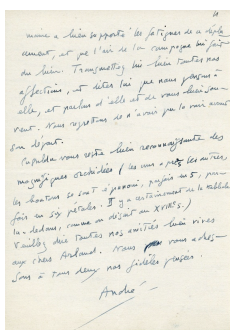 a bien supporté les fatigues de ce déplacement, et que l'air de la campagne lui fait
du bien. Transmettez lui bien toutes nos
affections, et dites lui que nous pensons à
elle, et parlons d'elle et de vous bien souvent.
Nous regrettons de n'avoir pu la voir avant
son départ.
vous reste bien reconnaissante des
magnifiques orchidées (les unes après les autres,
les boutons se sont épanouis, parfois en 5, parfois
en six pétales. Il y a certainement de la Kabbale
là-dedans, comme on disait au XVIIIe s.)
Veuillez dire toutes nos amitiés bien vives
aux chers Nous vous adressons
à tous deux nos fidèles pensées.
André